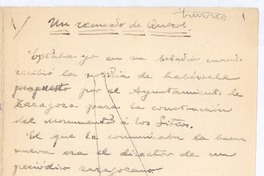 1
Un recuerdo de
Estaba yo en su estudio cuando
recibió la noticia de habérsele
propuesto por el Ayuntamiento de
Zaragoza para la construcción
del Monumento á los Sitios.
El que le comunicaba la buena
nueva era el director de un
periódico zaragozano